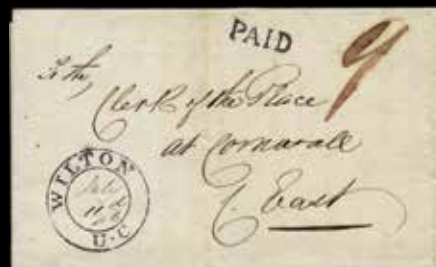 PAID
9
To the,
Clerk of the Place
at Cornwall
C. East
WILTON
U·C